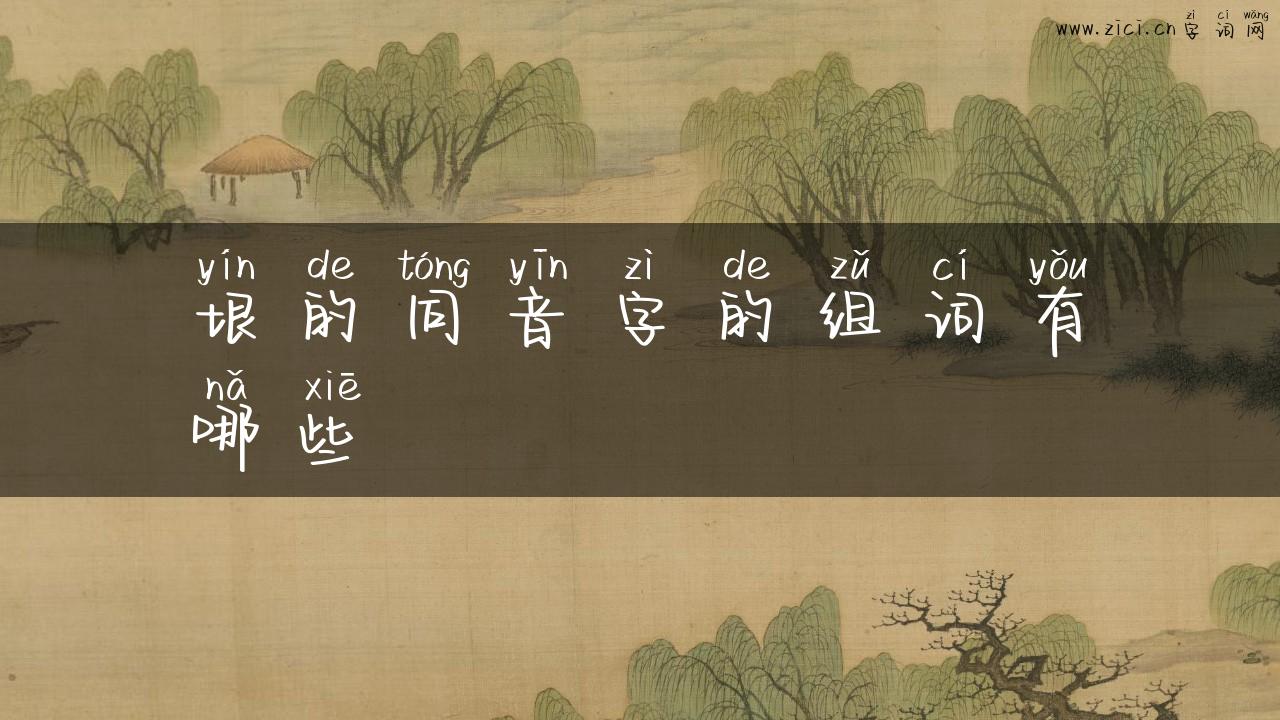 zì cí wǎng
www.zici.cn 字词网
yín de tóng yīn zì de zǔ cí yǒu
垠的同音字的组词有
nǎ xiē
哪些